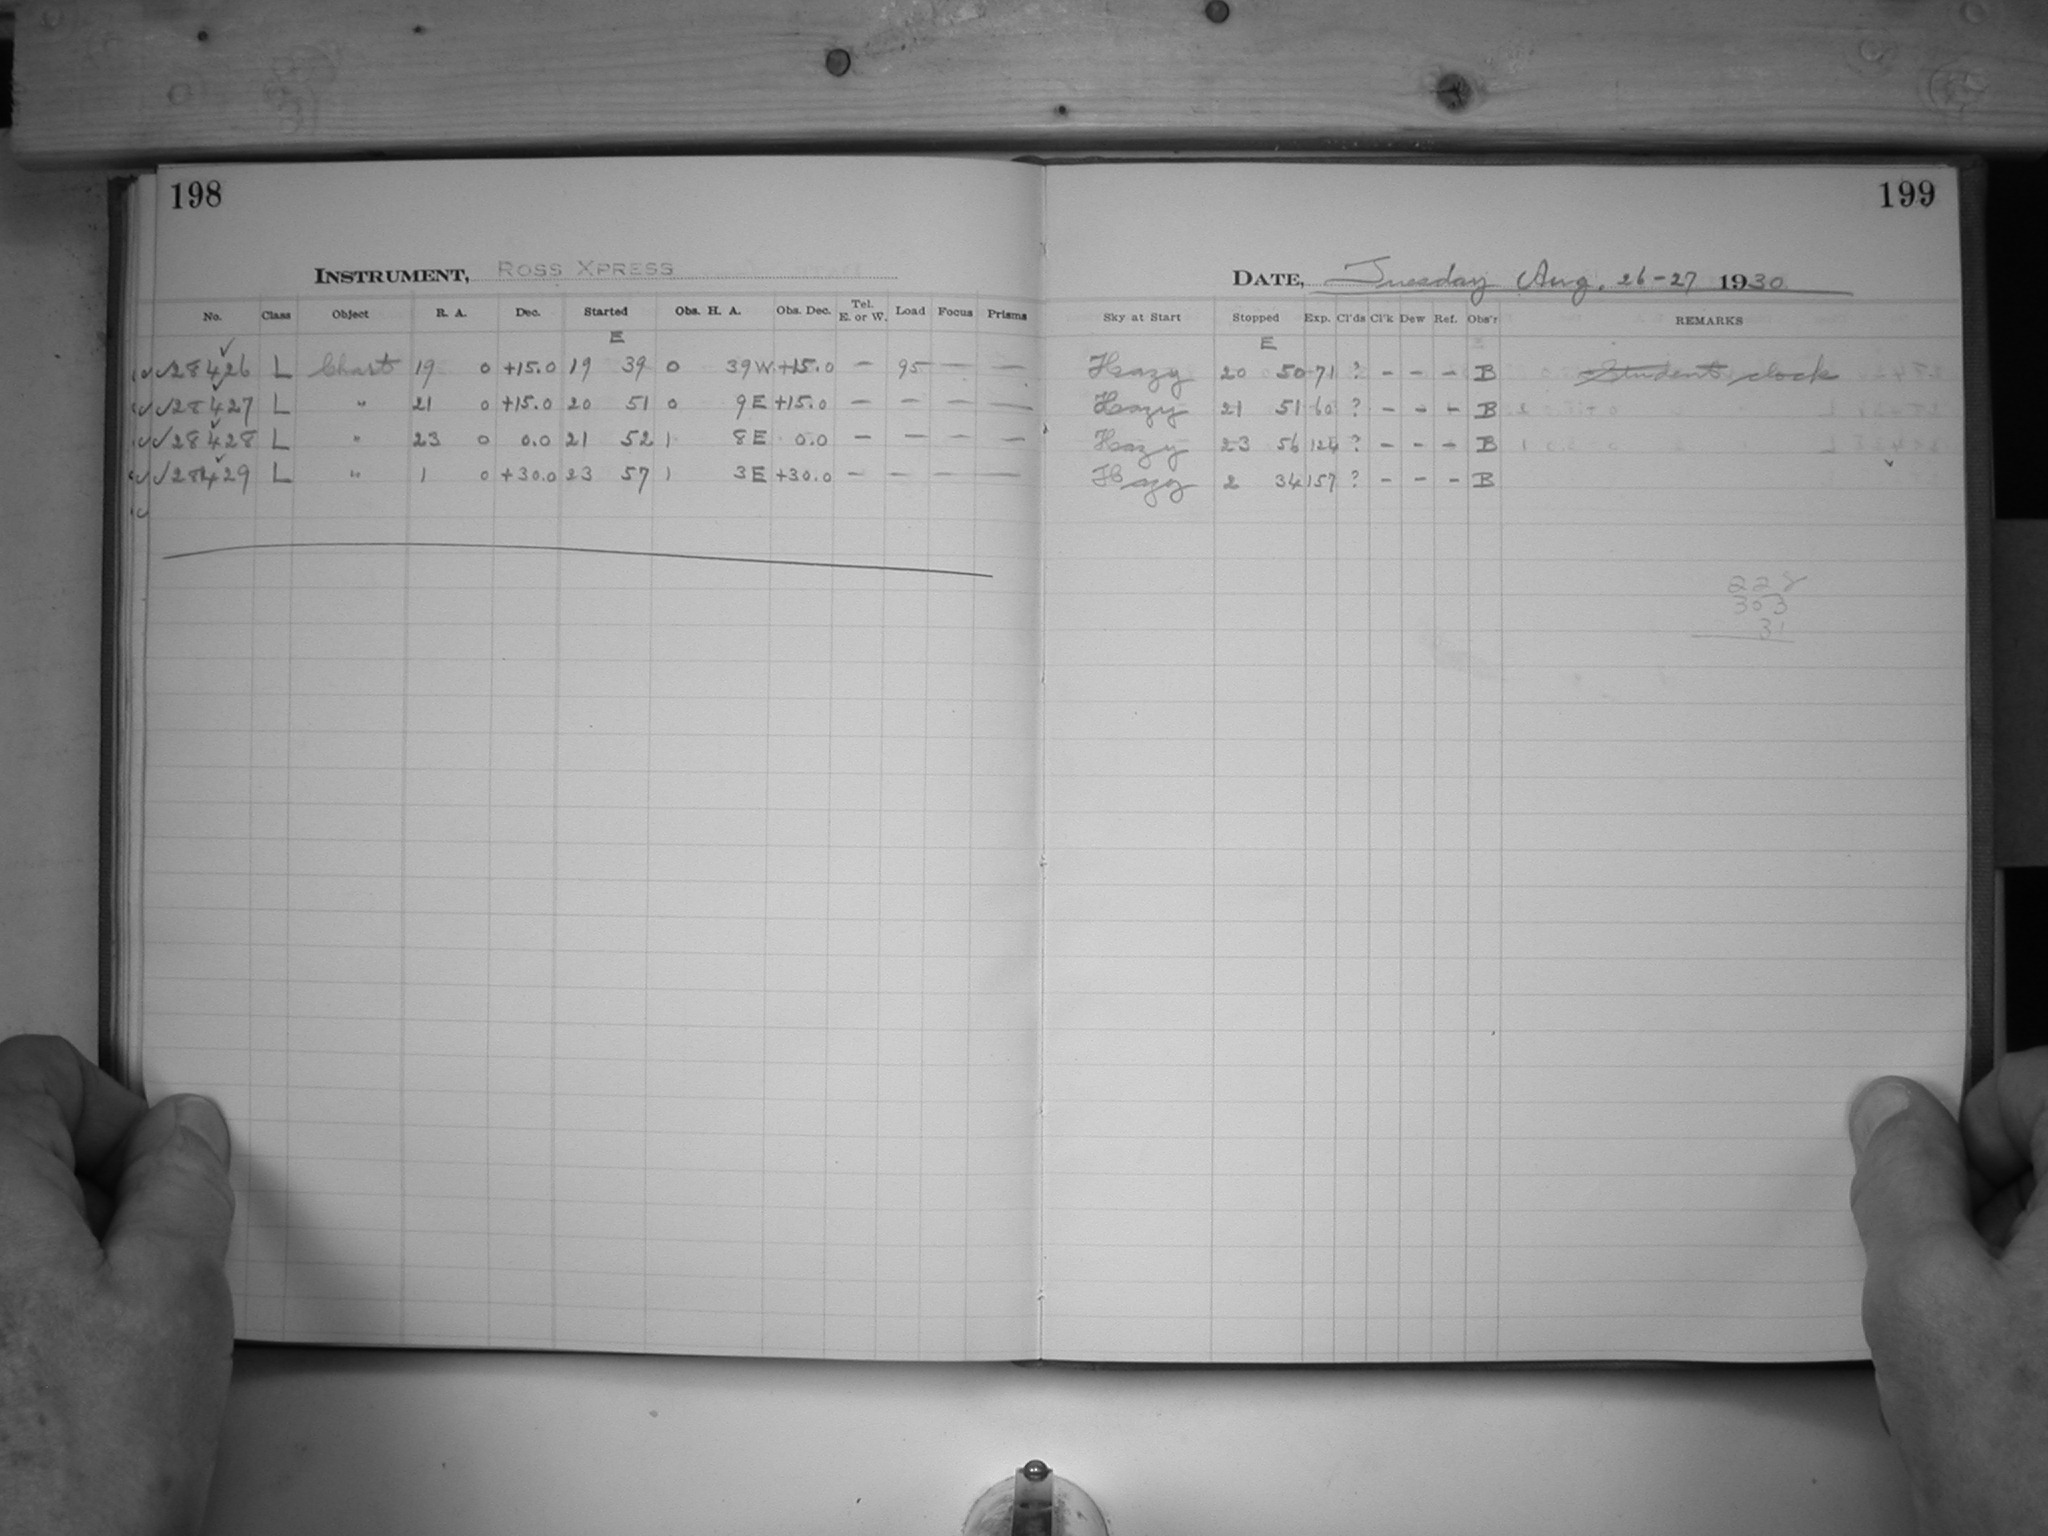 198
INSTRUMENT, ROSS XPRESS
No. Class Object R. A. Dec. Started Obs. H. A. Obs. Dec. Tel. E. or W. Load Focus Prisms
E
✓✓28426 L Chart 19 0 +15.0 19 39 0 39W +15.0 — 95 — —
✓✓28427 L " 21 0 +15.0 20 51 0 9E +15.0 — — — —
✓✓28428 L " 23 0 0.0 21 52 1 8E 0.0 — — — —
✓✓28429 L " 1 0 +30.0 23 57 1 3E +30.0 — — — —
199
DATE, Tuesday Aug. 26-27 1930
Sky at Start Stopped Exp. Cl'ds Cl'k Dew Ref. Obs'r REMARKS
E
Hazy 20 50 71 ? - - - B Student clock
Hazy 21 51 60 ? - - - B
Hazy 23 56 124 ? - - - B
Hazy 2 34 157 ? - - - B
228
303
31